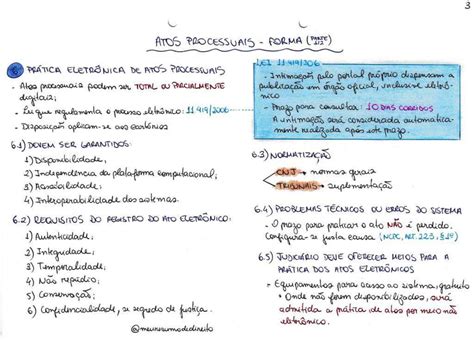 3
ATOS PROCESSUAIS - FORMA (PARTE 2/2)
6- PRÁTICA ELETRÔNICA DE ATOS PROCESSUAIS
- Atos processuais podem ser TOTAL OU PARCIALMENTE
digitais;
- Lei que regulamenta o processo eletrônico: 11.419/2006
- Disposições aplicam-se aos cartórios
6.1) DEVEM SER GARANTIDOS:
1) Disponibilidade;
2) Independência da plataforma computacional;
3) Acessibilidade;
4) Interoperabilidade dos sistemas.
6.2) REQUISITOS DO REGISTRO DO ATO ELETRÔNICO:
1) Autenticidade;
2) Integridade;
3) Temporalidade;
4) Não repúdio;
5) Conservação;
6) Confidencialidade, se segredo de justiça.
@meuresumodedireito
LEI 11.419/2006
- Intimação pelo portal próprio dispensam a
publicação em órgão oficial, inclusive eletrô-
nico.
- Prazo para consulta: 10 DIAS CORRIDOS
A intimação será considerada automatica-
mente realizada após este prazo.
6.3) NORMATIZAÇÃO
CNJ → normas gerais
TRIBUNAIS → suplementação
6.4) PROBLEMAS TÉCNICOS OU ERROS DO SISTEMA
- O prazo para praticar o ato NÃO é perdido.
Configura-se justa causa (NCPC, ART. 223, § 1º)
6.5) JUDICIÁRIO DEVE OFERECER MEIOS PARA A
PRÁTICA DOS ATOS ELETRÔNICOS
- Equipamentos para acesso ao sistema, gratuito
• Onde não forem disponibilizados, será
admitida a prática de atos por meio não
eletrônico.